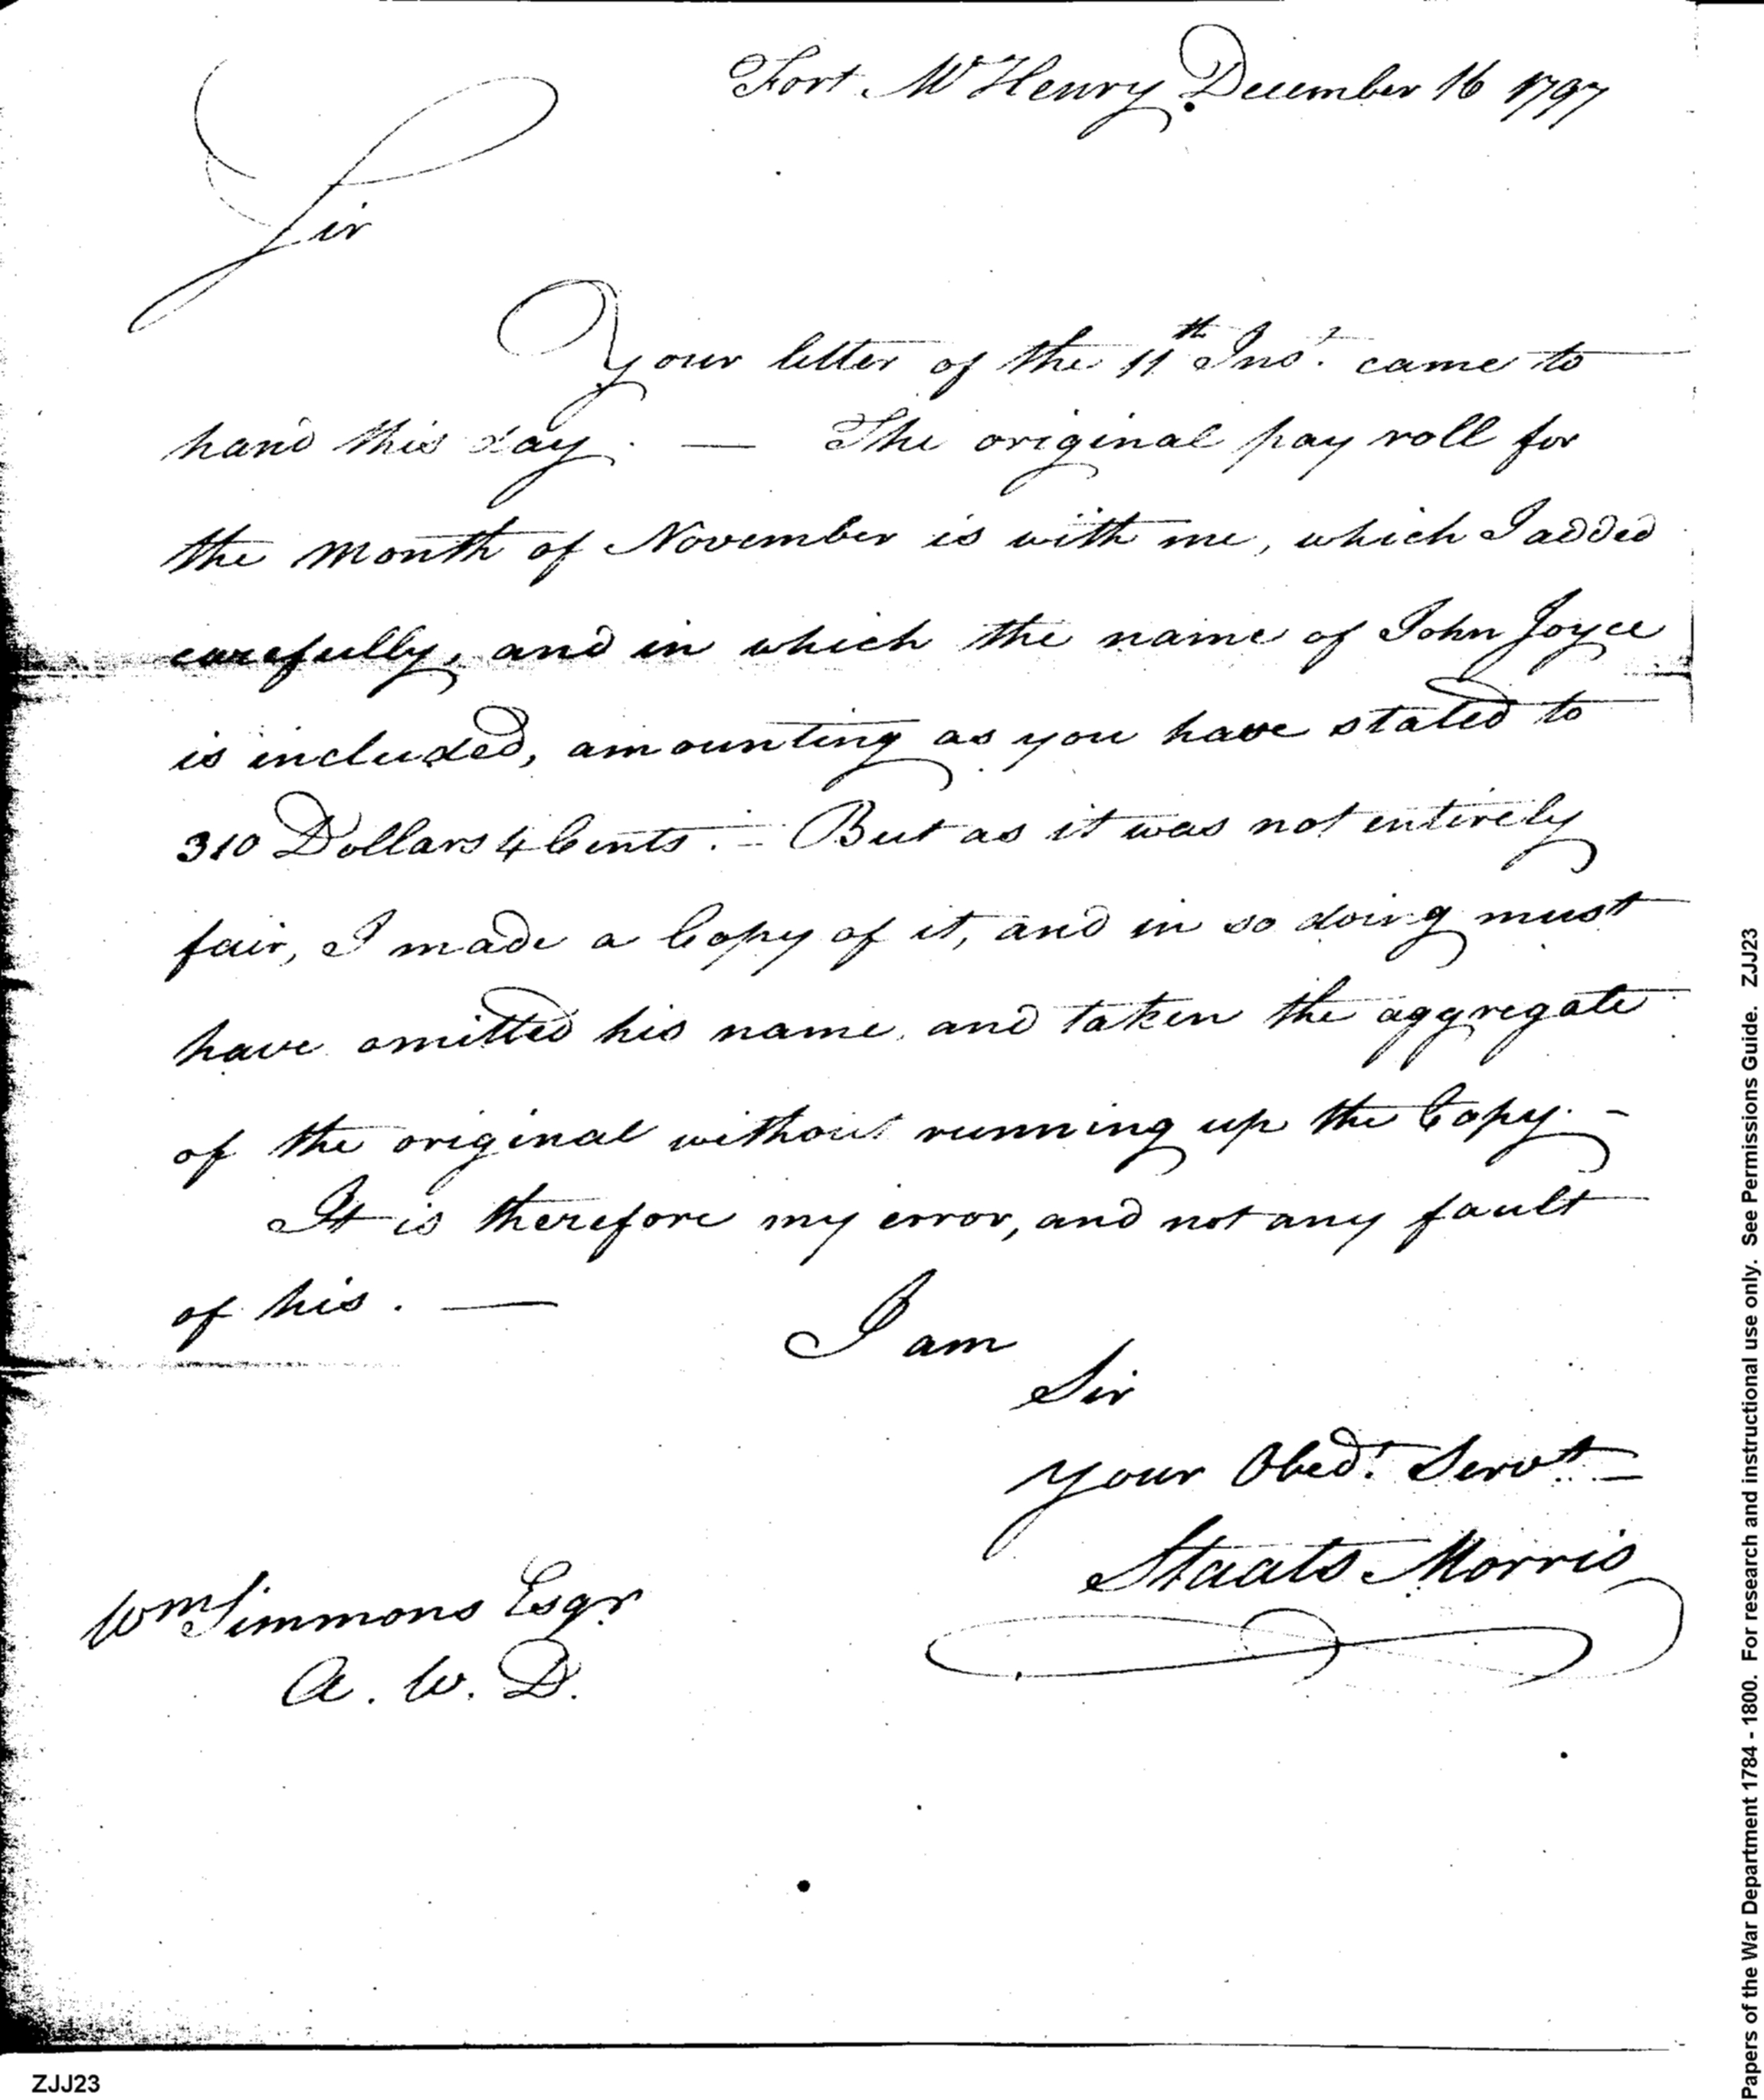 Fort McHenry December 16 1797
Sir
Your letter of the 11th Inst. came to
hand this day. — The original pay roll for
the month of November is with me, which I added
carefully, and in which the name of John Joyce
is included, amounting as you have stated to
310 Dollars 4 Cents. — But as it was not entirely
fair, I made a Copy of it, and in so doing must
have omitted his name, and taken the aggregate
of the original without running up the Copy. —
It is therefore my error, and not any fault
of his. —
I am
Sir
your Obedt. Servt
Staats Morris
Wm Simmons Esqr.
A. W. D.
ZJJ23
Papers of the War Department 1784 - 1800. For research and instructional use only. See Permissions Guide. ZJJ23